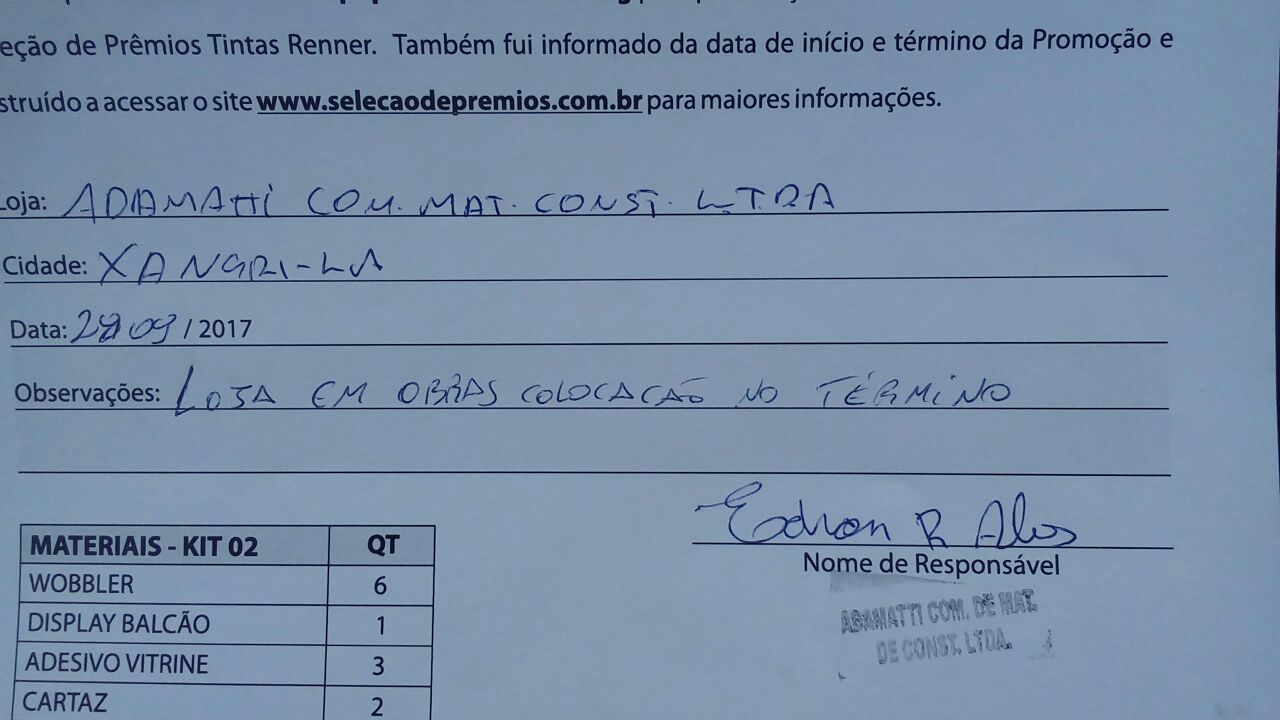 eção de Prêmios Tintas Renner. Também fui informado da data de início e término da Promoção e
struído a acessar o site www.selecaodepremios.com.br para maiores informações.
Loja: ADAMATTI COM. MAT. CONST. LTDA
Cidade: XANGRI-LA
Data: 28/09 / 2017
Observações: LOJA EM OBRAS COLOCAÇÃO NO TÉRMINO
Edson R Alves
Nome de Responsável
ADAMATTI COM. DE MAT.
DE CONST. LTDA.
MATERIAIS - KIT 02 QT
WOBBLER 6
DISPLAY BALCÃO 1
ADESIVO VITRINE 3
CARTAZ 2